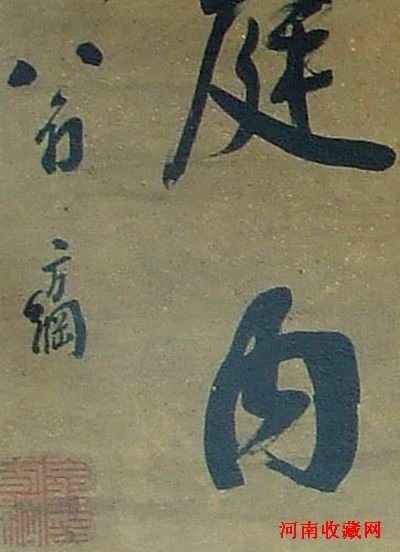 庭内
翁方綱
河南收藏网